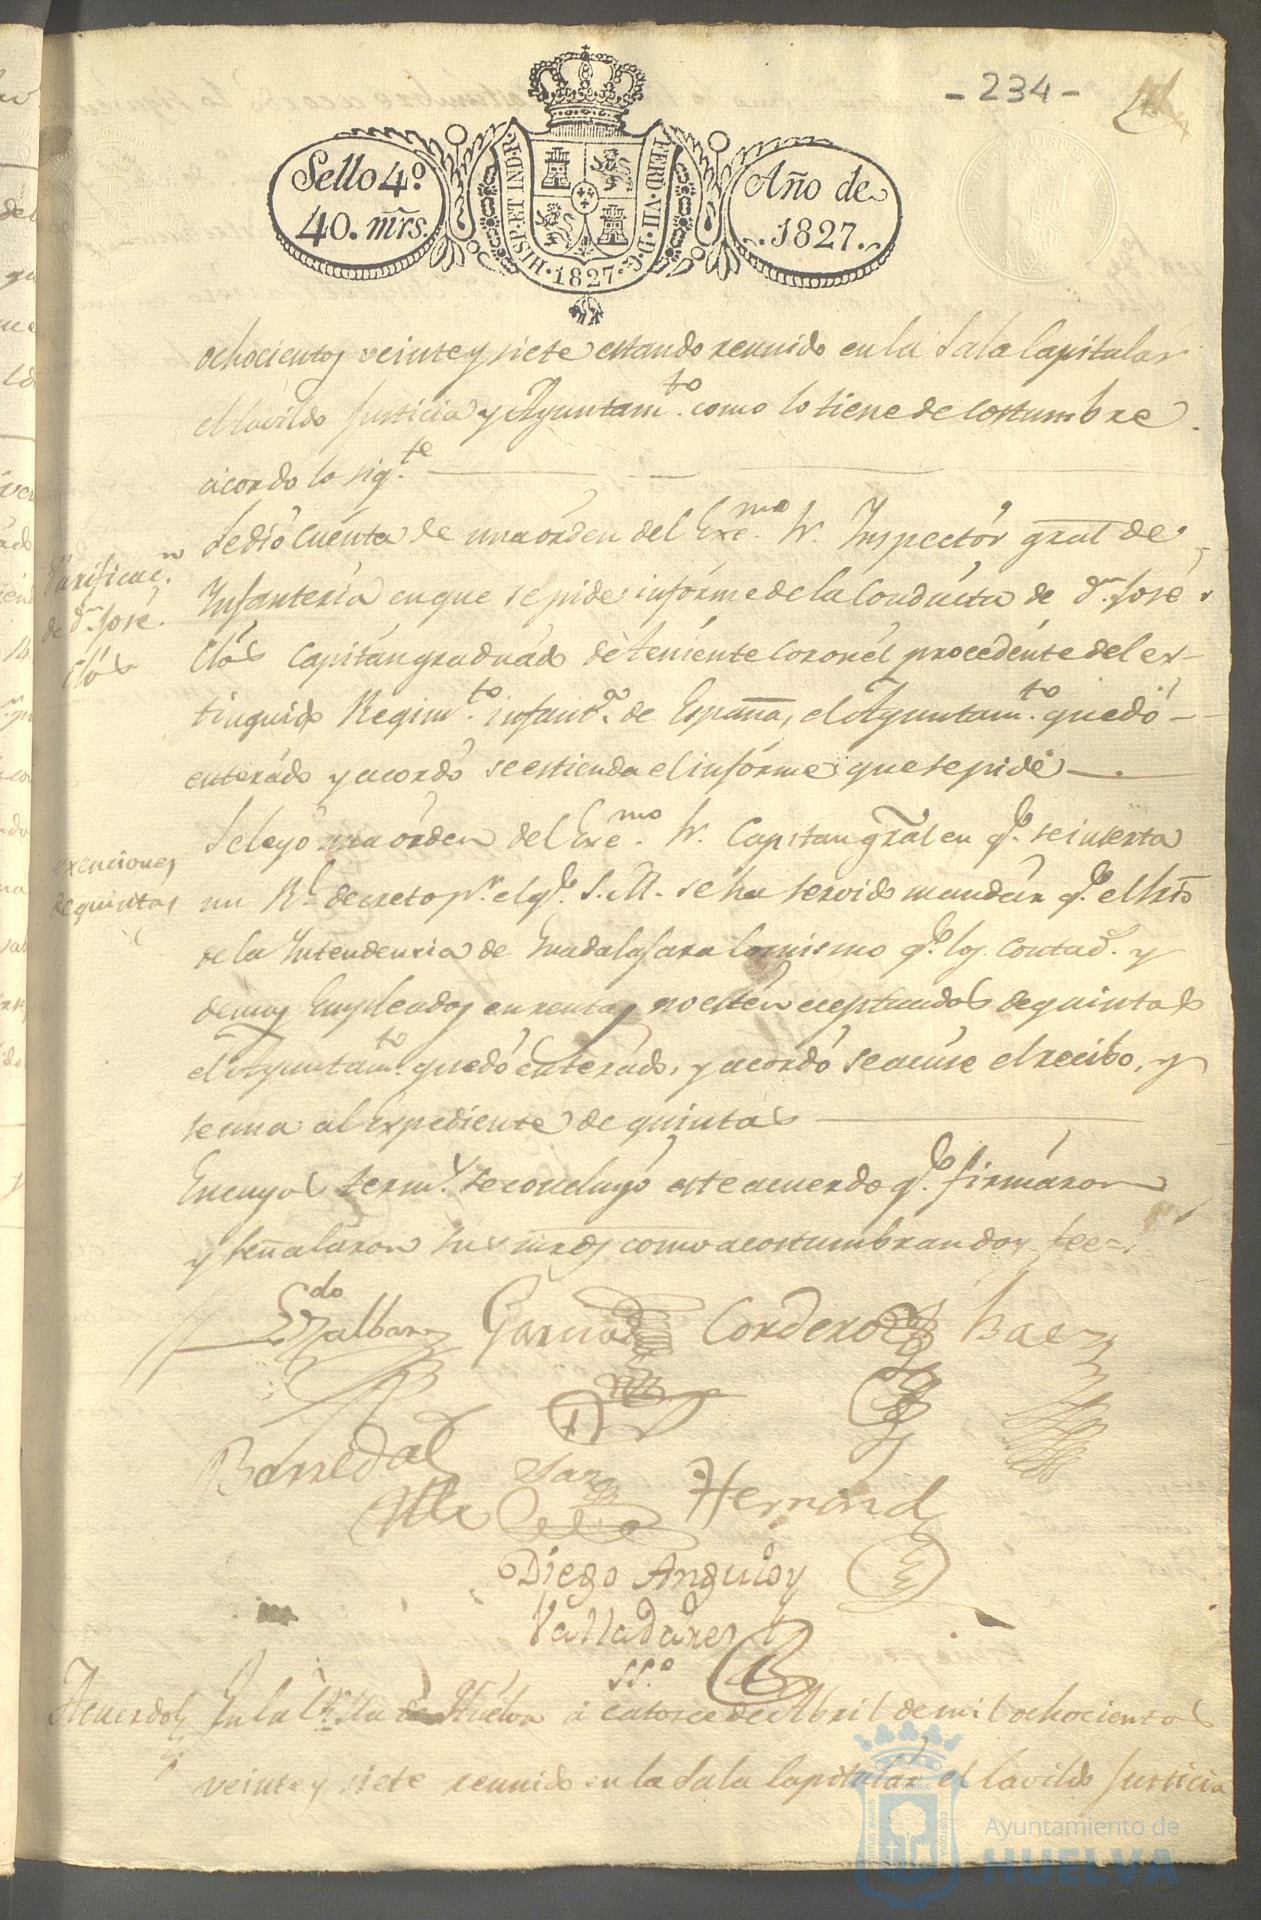 - 234 -
Sello 4º
40. mrs.
HISP. ET. IND. R.
FERD. VII. D. G.
1827
Año de
1827.
ochocientos veinte y siete estando reunido en la Sala Capitular
el Cavildo Justicia y Ayuntam.to como lo tiene de costumbre
acordo lo sig.te
Purificac.n
de d.n José
Clós
Se dió cuenta de una órden del Exc.mo Sr. Inspectór gral de
Infantería en que se pide infórme de la Conducta de d.n José
Clós Capitán graduado de Teniente Coronél procedente del ex-
tinguido Regim.to infant.a de España, el Ayuntam.to quedó
enterádo y acordó se estienda el infórme que se pide
exenciones
de quintas
Se leyó una órden del Exc.mo Sr. Capitan gral en q.e se inserta
un R.l decreto p.r el q.e S.M. se ha servido mandár q.e el
de la Intendencia de Guadalajara lo mismo q.e los Contad.s y
demas Empleados en rentas no estén eceptuados de quintas
el Ayuntam.to quedó enterádo, y acordó se acuse el recibo, y
se una al Expediente de quintas
En cuyos term.s se concluyó este acuerdo q.e firmáron
y señaláron sus mrds como acostumbran doy fee
Ldo
Garrido Cordero Baez
Barreda
Hernand
Diego Angulo y
Valladares
SS.º
Acuerdo
En la Villa de Huelva á catorce de Abril de mil ochocientos
veinte y siete reunido en la Sala Capitulár el Cavildo Justicia
Ayuntamiento de
HUELVA